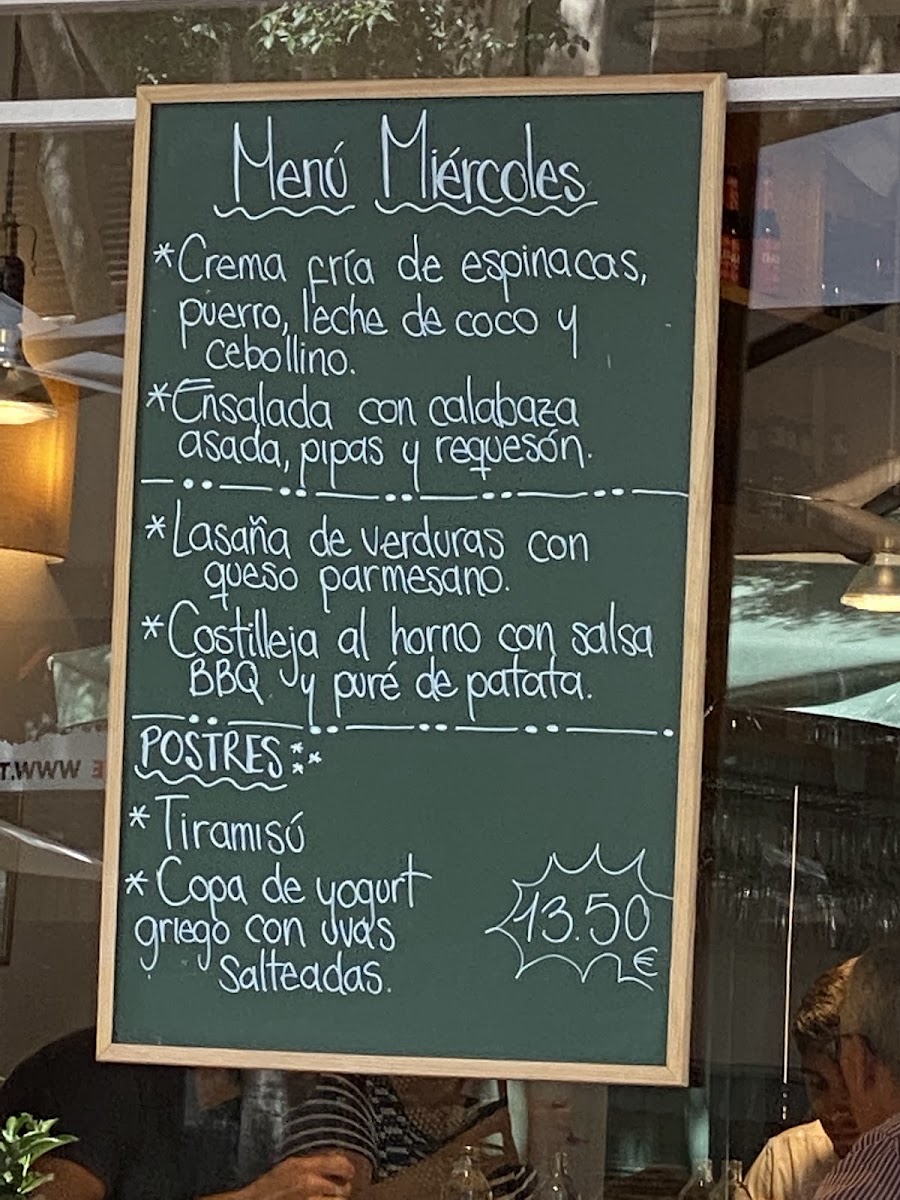 Menú Miércoles
*Crema fría de espinacas,
puerro, leche de coco y
cebollino.
*Ensalada con calabaza
asada, pipas y requesón.
*Lasaña de verduras con
queso parmesano.
*Costilleja al horno con salsa
BBQ y puré de patata.
POSTRES:
*Tiramisú
*Copa de yogurt
griego con uvas
salteadas.
13.50
€